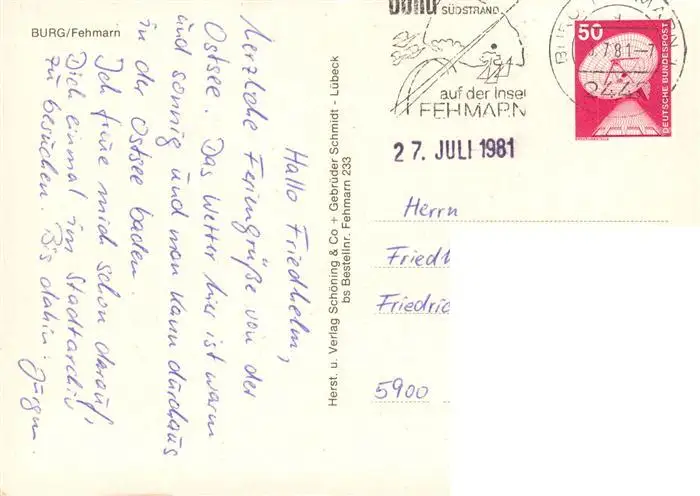 BURG/Fehmarn
Hallo Friedhelm,
herzliche Feriengrüße von der
Ostsee. Das Wetter hier ist warm
und sonnig und man kann durchaus
in der Ostsee baden.
Ich freue mich schon darauf,
Dich einmal im Stadtarchiv
zu besuchen. Bis dahin: Jürgen.
Herst. u. Verlag Schöning & Co + Gebrüder Schmidt - Lübeck
bs Bestellnr. Fehmarn 233
SÜDSTRAND
auf der Insel
FEHMARN
27. JULI 1981
50
DEUTSCHE BUNDESPOST
Herrn
Friedh
Friedric
5900